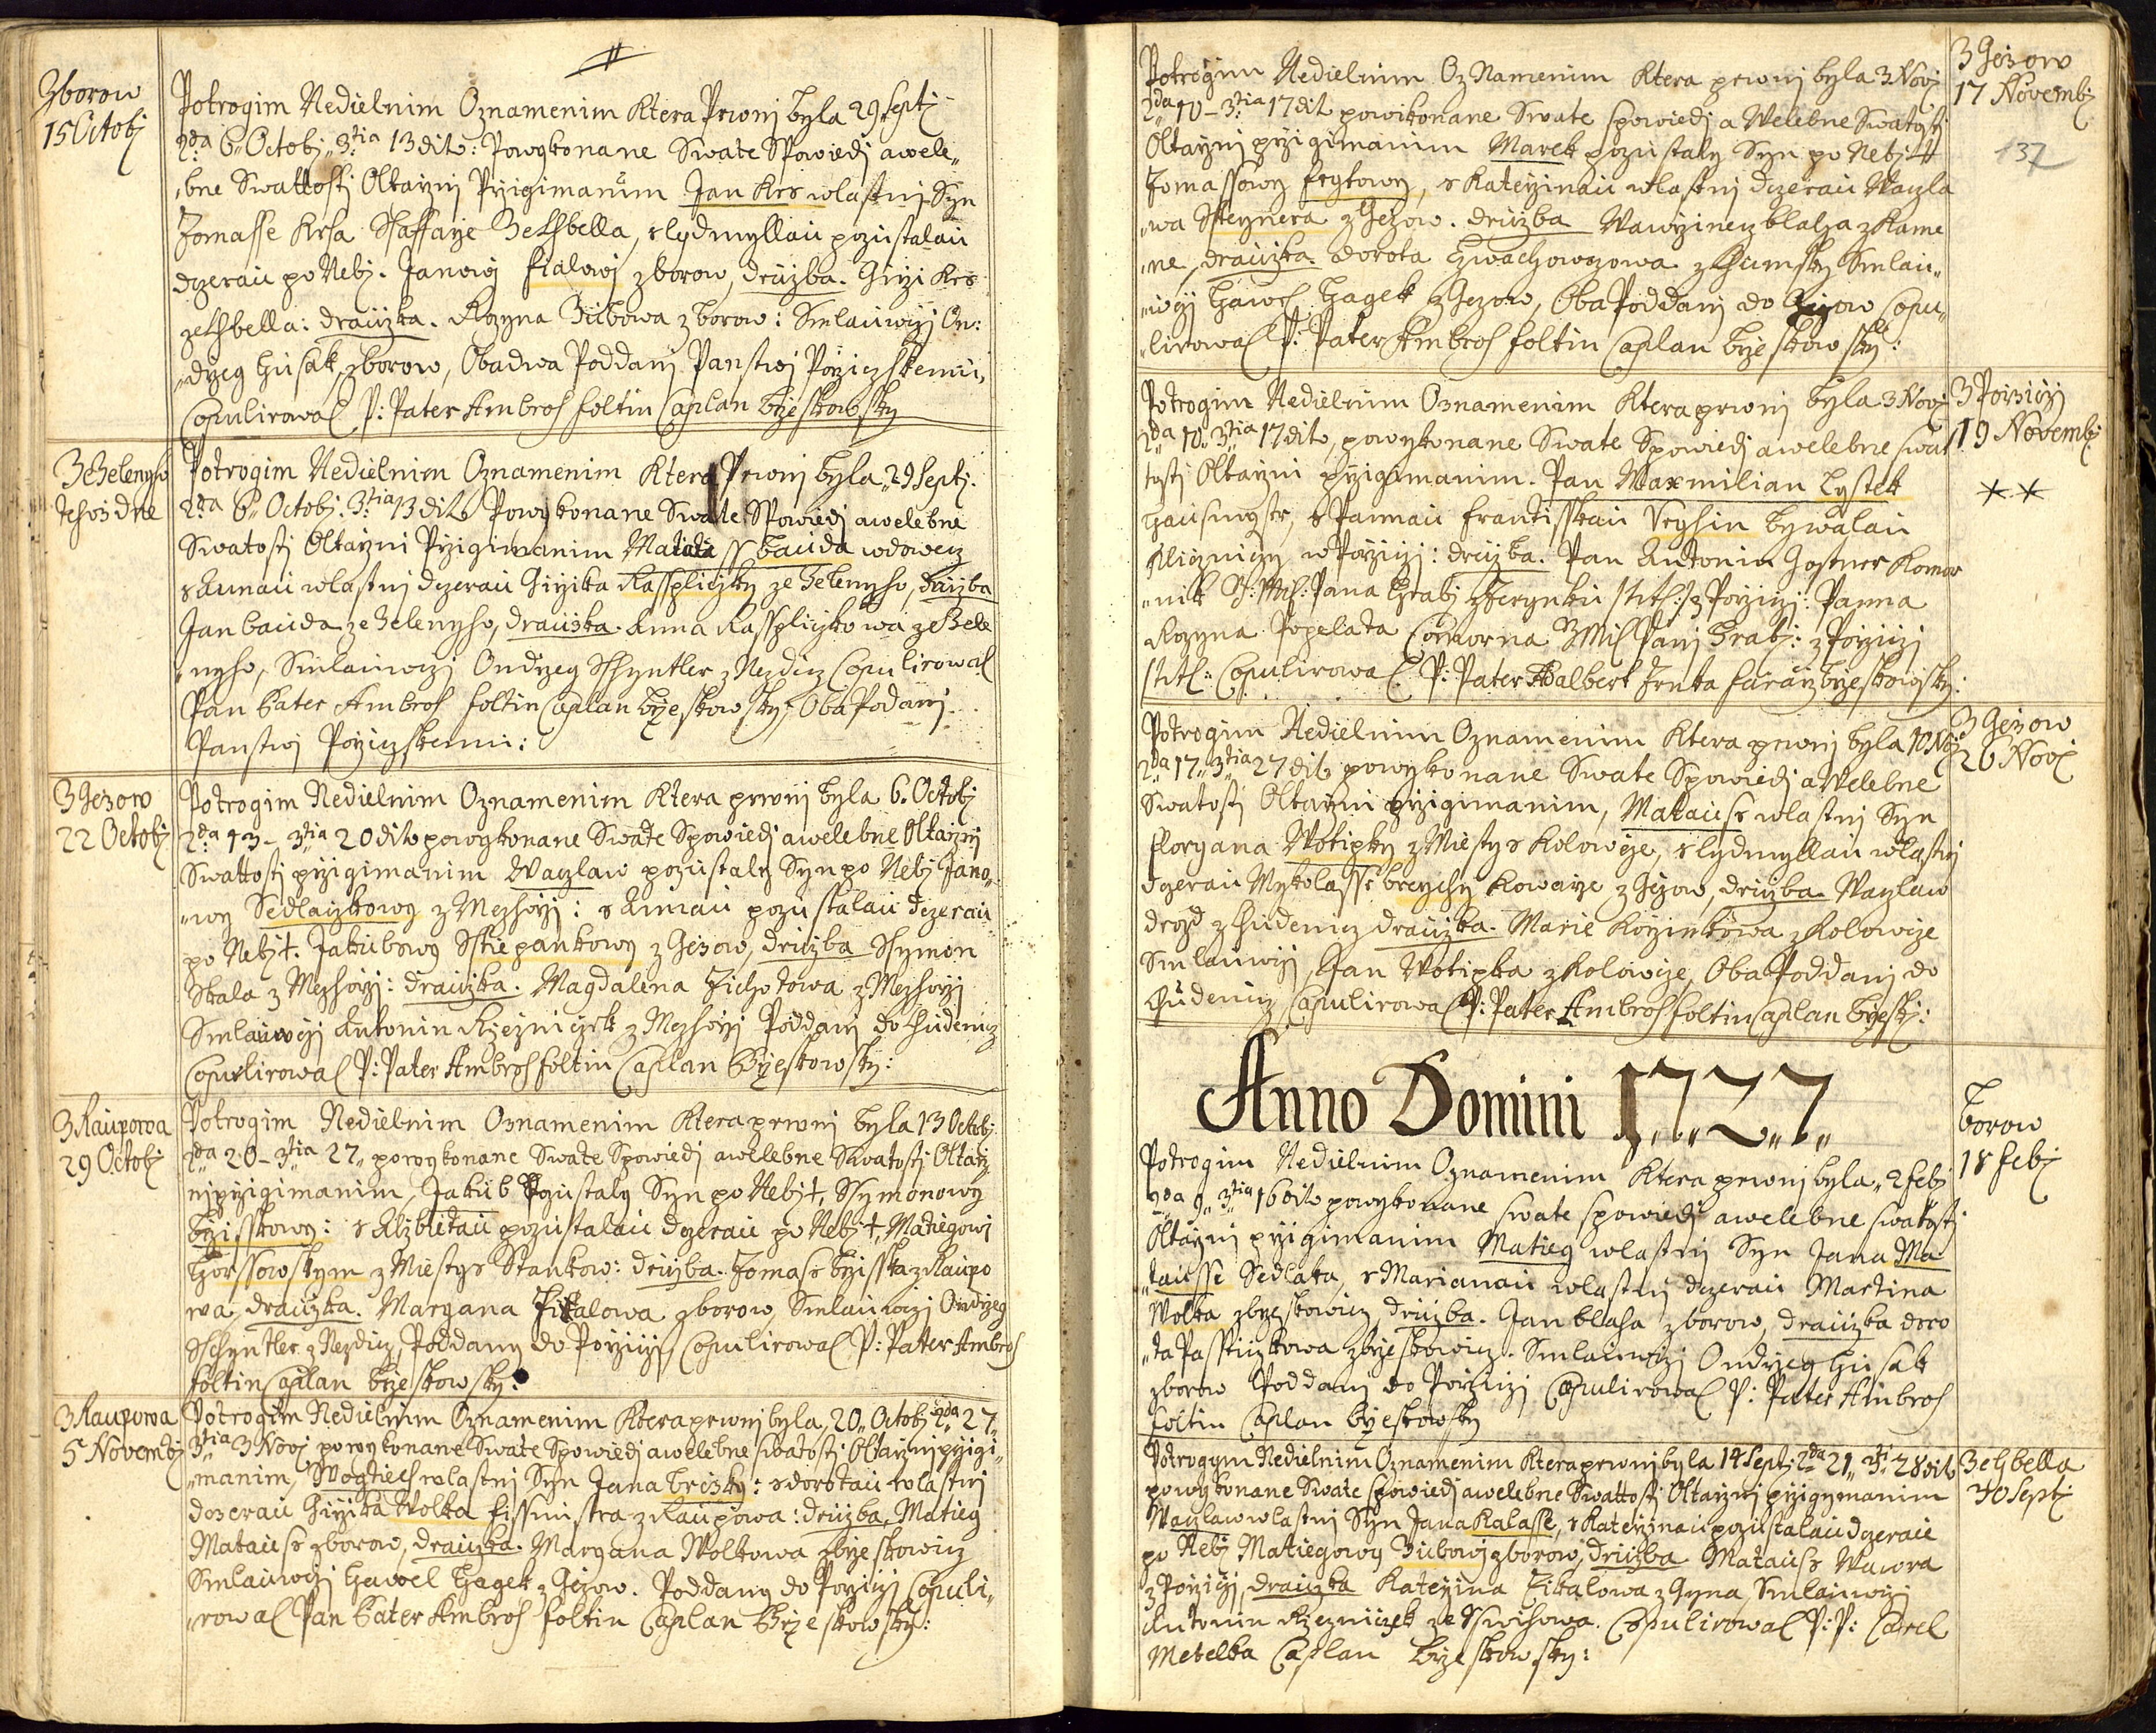 Zborow
15 Octobj
Potrogim Nedielnim Oznamenim Ktera Prwnj byla 29 Septj
2da 6 Octobj 3tia 13 dito: Powykonane Swate Spowiedj a wele„
„bne Swattostj Oltarznj Przigimanim Jan Krs wlastnj Syn
Tomasse Krsa Ssaffarze Zelhbella, s lydmyllau pozustalau
dczerau po Nebj. Janowj fialowj zborow, druzba. Girzi Krs
zelhbella: drauzka. Rozyna Dubowa z borow: Smlauwczj On:
„drzeg Husak, zborow, Obadwa Poddanj Panstwj Porziczskemu,
Copulirowal P: Pater Ambros foltin Caplan brzeskowsky
Z Zelenyho
tehoz dne
Potrogim Nedielnim Oznamenim Ktera Prwnj byla „29 Septj.
2da 6 Octobj. 3tia 13 dito Powykonane Swate Spowiedj awelebne
Swatostj Oltarzni Przigimanim bauda wdowecz
s Annau wlastnj dczerau Girzika Kasspliczky ze Zelenyho, druzba
Jan bauda ze Zelenyho, drauzka. Anna Kasspliczkowa ze Zele
„nyho, Smlauwczj Ondrzeg Sshyntler z Nezdicz Copulirowal
Pan Pater Ambros foltin Caplan brzeskowsky, Oba Podanj
Panstwj Porziczskemu:
Z Gezow
22 Octobj
Potrogim Nedielnim Oznamenim Ktera prwnj byla 6. Octobj
2da 13 - 3tia 20 dito powykonane Swate Spowiedj awelebne Oltarznj
Swattostj przigimanim Waczlaw pozustaly Syn po Nebj Jano„
„wy Sedlaczkowy z Mezhorzj: s Annau pozustalau dczerau
po Nebj†. Jakubowy Sstiepankowy z Gezow, druzba Sshymon
Skala z Mezhorzj: drauzka. Magdalena Tichotowa z Mezhorzj
Smlauwczj Antonin Rzezniczek z Mezhorzj Poddanj do Chudenicz
Copulirowal P: Pater Ambros foltin Caplan brzeskowsky:
Z Kaupowa
29 Octobj
Potrogim Nedielnim Oznamenim Ktera prwnj byla 13 Octobj.
2da 20 - 3tia 27„ powykonane Swate Spowiedj awelebne Swatostj Oltarz
nj przigimanim, Jakub Pozustaly Syn po Nebj†, Ssymonowy
brzisskowy: s Alzbietau pozustalau dczerau po Nebj†, Matiegowj
Horssowskym z Miestys Stankow: druzba. Tomass brzisska z Kaupo
wa, drauzka. Maryana Fikalowa zborow, Smlauwczj Ondrzeg
Sshyntler z Nezdicz, Poddany do Porziczj, Copulirowal P: Pater Ambros
foltin Caplan brzeskowsky:
Z Kaupowa
5 Novembj
Potrogim Nedielnim Oznamenim Ktera prwnj byla, 20 Octobj 2da 27„
3tia 3 Novj powykonane Swate Spowiedj awelebne swatostj Oltarznj przigi„
„manim, Wogtiech wlastnj Syn Jana brisky: s dorotau wlastnj
dozerau Girzika Wolka fissmistra z Kaupowa: druzba, Matieg
Matauss zborow, drauzka. Maryana Wolkowa zbrzeskowicz
Smlauwczj Hawel Hagek z Gezow. Poddany do Porziczj Copuli„
„rowal Pan Pater Ambros foltin Caplan Brzeskowsky:
Z Gezow
17 Novembj
137
Potrogim Nedielnim Oznamenim Ktera prwnj byla 3 Novj
2da 10 - 3tia 17 dito powikonane Swate Spowiedj a Welebne Swatostj
Oltarznj przigimanim Marek pozustaly Syn po Nebj†
Tomassowy frytowy, s Katerzinau wlastnj dczerau Waczla
„wa Ssteynera z Gezow. druzba Wawrzinecz blaha z Kame
„ne, drauzka dorota Smlau„
„wczj Hawel Hagek z Gezow, Oba Poddanj do Gezow Copu„
„lirowal P: Pater Ambros foltin Caplan brzeskowsky:
Z Porziczj
19 Novembj
**
Potrogim Nedielnim Oznamenim Ktera prwnj byla 3 Novj
2da 10„ 3tia 17 dito, powykonane Swate Spowiedj awelebne swat
tostj Oltarznj przigimanim. Pan Maxmilian Lystek
Hausmystr, s Pannau frantisskau Veyhin bywalau
Kliczniczy w Porziczj: druzba. Pan Antonin Gostner Komor
„nik Pana Hrabj z Porziczj: Panna
Rozyna Popelata Comorna Panj Hrabj: z Porziczj
Copulirowal P: Pater Adalbert Trnka fararz brzeskowsky:
Z Gezow
26 Novj
Potrogim Nedielnim Oznamenim Ktera prwnj byla 10 Novj
2da 17„ 3tia 27 dito powykonane Swate Spowiedj aWelebne
Swatostj Oltarznj przigimanim, Matauss wlastnj Syn
floryana Wotipky z Miestys Kolowcze, s lydmyllau wlastnj
dczerau Mykolasse breychy Kowarze z Gezow, druzba. Waczlaw
drozd z Chudenicz drauzka. Marie Korzinkowa z Kolowcze
Smlauwczj, Jan Wotipka z Kolowcze, Oba Poddanj do
Chudenicz Copulirowal P: Pater Ambros foltin Caplan brzeskj:
Anno Domini 1„7„2„7„
Borow
18 febj
Potrogim Nedielnim Oznamenim Ktera prwnj byla„ 2 febj
2da 9„ 3tia 16 dito powykonane swate spowiedj awelebne swatostj
Oltarznj przigimanim Matieg wlastnj Syn Jana Ma
„tausse Sedlaka, s Marianau wlastnj dczerau Martina
Wolka zbrzeskowicz, druzba. Jan blaha zborow, drauzka doro
„ta Passticzkowa zbrzeskowicz. Smlauwczj Ondrzeg Husak
zborow Poddanj do Porziczj Copulirowal P: Pater Ambros
foltin Caplan brzeskowsky
Zelhbella
30 Septj
Potrogym Nedielnim Oznamenim Ktera prwnj byla 14 Septj 2da 21„ 3ti: 28 dito
powykonane Swate spowiedj awelebne Swattostj Oltarznj przigymanim
Waczlaw wlastnj Syn Jana Kalasse, s Katerzinau pozustalau dczerau
po Nebj Matiegowy Dubowj zborow, druzba Matauss Wawra
z Porziczj, drauzka Katerzina Cikalowa z Gyna, Smlauwczj
Antonin Rzezniczek ze Sswihowa. Copulirowal P: P: Carel
Metelka Caplan Brzeskowsky: